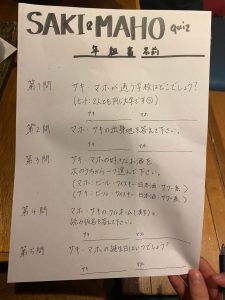 SAKI & MAHO quiz
年 組 番 名前
第1問 サキ・マホが通う学校はどこでしょう?
(ヒント:2人とも同じ大学です☺)
サキ マホ
第2問 マホ・サキの出身地を答えて下さい。
サキ マホ
第3問 サキ・マホの好きなお酒を
次のうちから一つ選んで下さい。
(マホ:ビール・ウイスキー・日本酒・サワー系)
(サキ:ビール・ウイスキー・日本酒・サワー系)
第4問 マホ・サキのフルネーム(漢字)。
読み仮名を答えて下さい。
第5問 サキ・マホの誕生日はいつでしょう?
サキ マホ